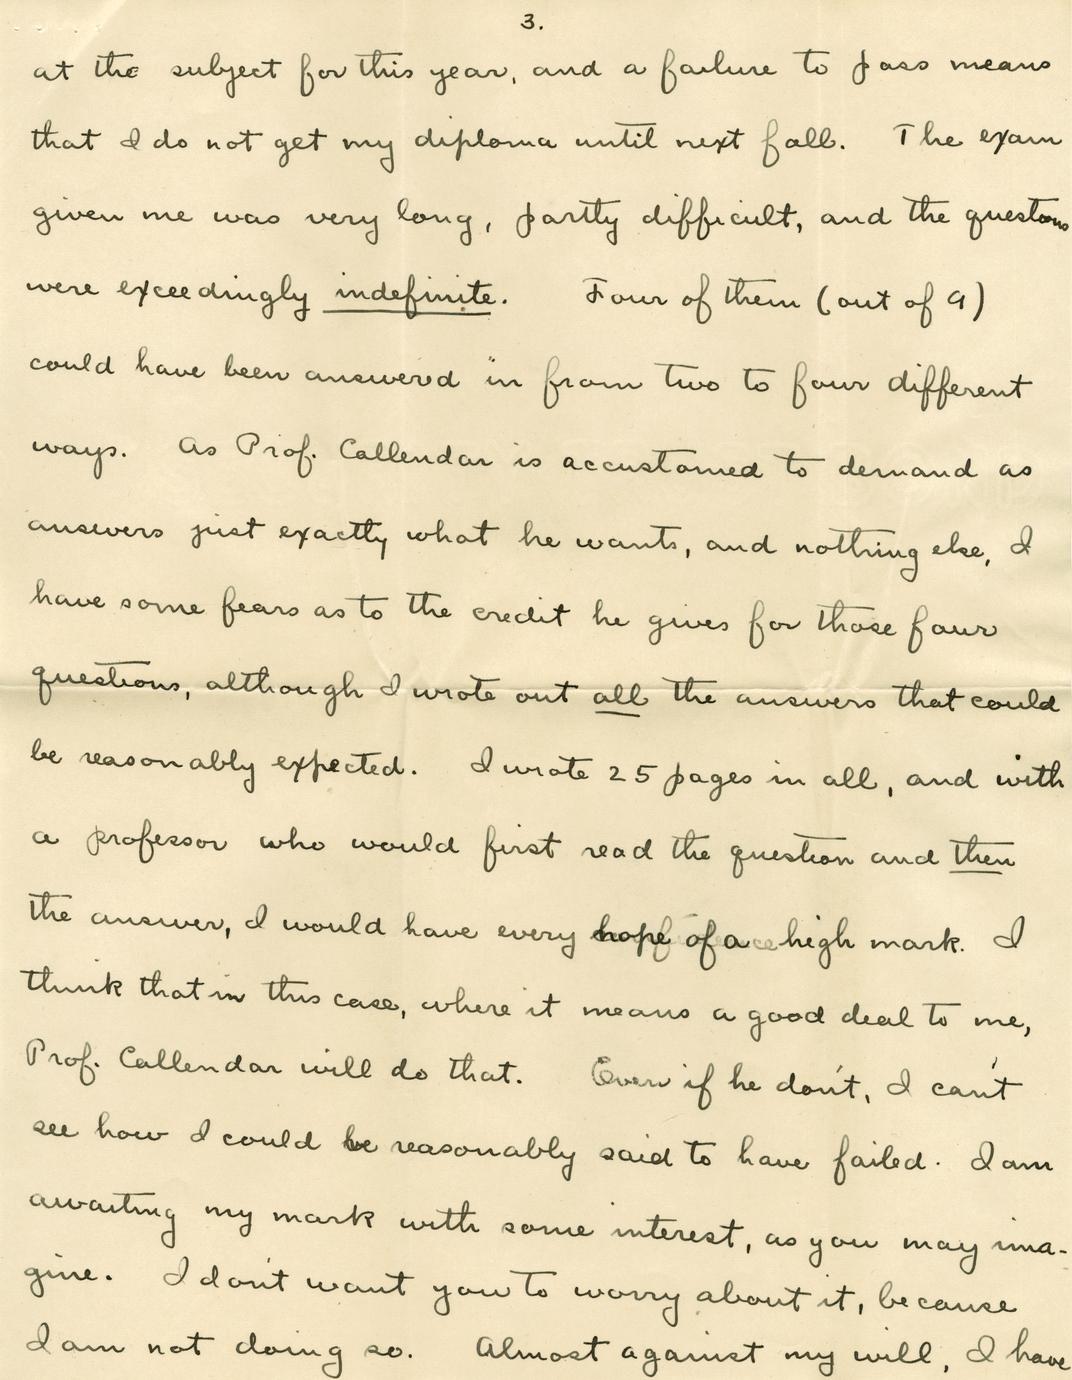 3.
at the subject for this year, and a failure to pass means
that I do not get my diploma until next fall. The exam
given me was very long, partly difficult, and the questions
were exceedingly indefinite. Four of them (out of 9)
could have been answered in from two to four different
ways. As Prof. Callendar is accustomed to demand as
answers just exactly what he wants, and nothing else, I
have some fears as to the credit he gives for those four
questions, although I wrote out all the answers that could
be reasonably expected. I wrote 25 pages in all, and with
a professor who would first read the question and then
the answer, I would have every hope of a high mark. I
think that in this case, where it means a good deal to me,
Prof. Callendar will do that. Even if he don't, I can't
see how I could be reasonably said to have failed. I am
awaiting my mark with some interest, as you may ima-
gine. I don't want you to worry about it, because
I am not doing so. Almost against my will, I have